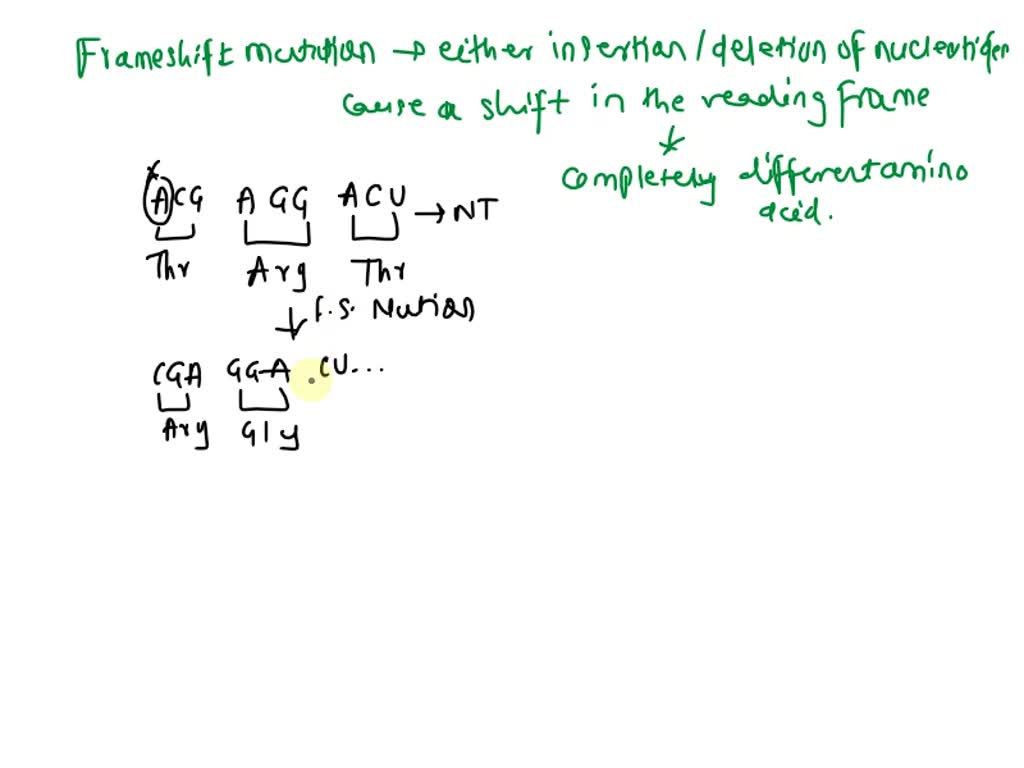 Frameshift mutation → either insertion/deletion of nucleotides
cause a shift in the reading frame
↓
completely different amino
acid.
ACG AGG ACU → NT
Thr Arg Thr
↓ F.S. Mution
CGA GGA CU...
Arg Gly